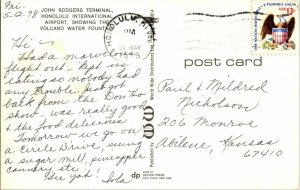 Fri.
5-12-78
JOHN RODGERS TERMINAL,
HONOLULU INTERNATIONAL
AIRPORT, SHOWING THE
VOLCANO WATER FOUNTAIN
Hi's
Had a marvelous
flight out. Kept us
eating so nobody had
any trouble. Just got
back from the Don Ho
show. was really good
& the food delicious
Tomorrow we go on
a Circle Drive, seeing
a sugar mill, pineapple
cannery etc.
See ya! Lola
HONOLULU, HAWAII
PM
13 MAY
USA 13c
post card
Paul & Mildred
Nicholson
206 Monroe
Abilene, Kansas
67410
dp